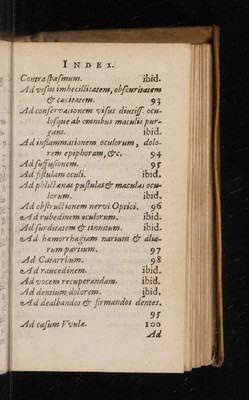 INDEX.
Contra spasmum. ibid.
Ad visus imbecillitatem, obscuritatem
& cæcitatem. 93
Ad conservationem visus diutiss. ocu-
losque ab omnibus maculis pur-
gans. ibid.
Ad inflammationem oculorum, dolo-
rem epiphoram, &c. 94
Ad suffusionem. 95
Ad fistulam oculi. ibid.
Ad phlictænas pustulas & maculas ocu-
lorum. ibid.
Ad obstructionem nervi Optici. 96
Ad rubedinem aculorum. ibid.
Ad surditatem & tinnitum. ibid.
Ad hæmorrhagiam narium & alia-
rum partium. 97
Ad Catarrhum. 98
Ad raucedinem. ibid.
Ad vocem recuperandam. ibid.
Ad dentium dolorem. ibid.
Ad dealbandos & firmandos dentes.
95
Ad casum Vvulæ. 100
Ad